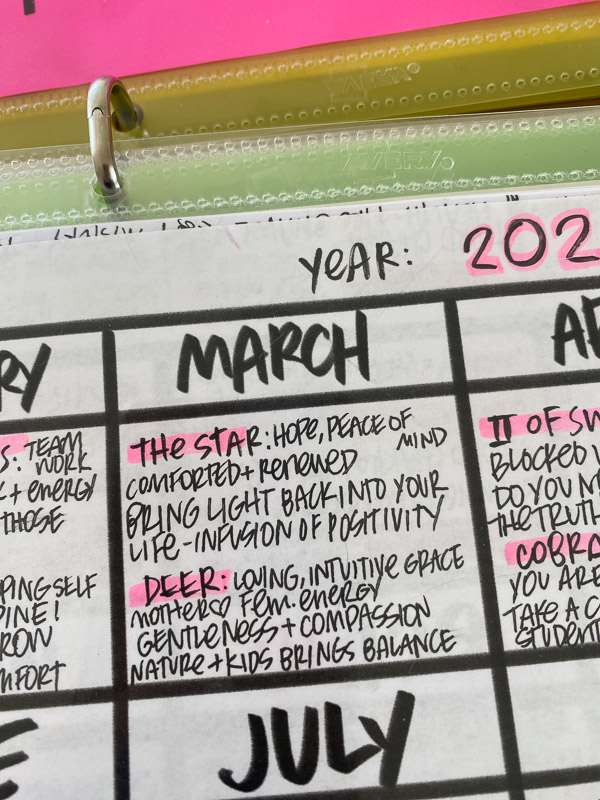 AVERY
AVERY
YEAR: 202
RY
MARCH
AP
S: TEAM
WORK
+ ENERGY
THOSE
PING SELF
PINE!
ROW
MFORT
THE STAR: HOPE, PEACE OF
MIND
COMFORTED + RENEWED
BRING LIGHT BACK INTO YOUR
LIFE - INFUSION OF POSITIVITY
DEER: LOVING, INTUITIVE GRACE
MOTHER♡ FEM. ENERGY
GENTLENESS + COMPASSION
NATURE + KIDS BRINGS BALANCE
II OF SW
BLOCKED
DO YOU N
THE TRUTH
COBRA
YOU ARE
TAKE A C
STUDENT
E
JULY